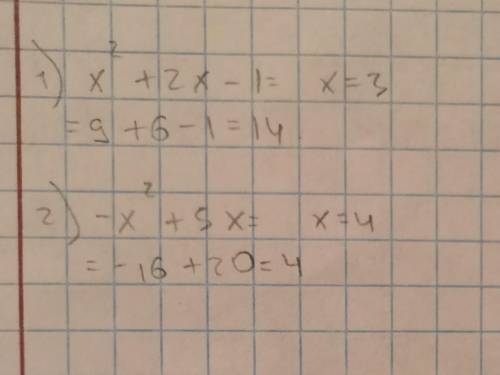 1) x² + 2x - 1 = x = 3
= 9 + 6 - 1 = 14
2) -x² + 5x = x = 4
= -16 + 20 = 4